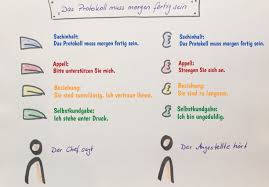 Das Protokoll muss morgen fertig sein
Sachinhalt:
Das Protokoll muss morgen fertig sein.
Appell:
Bitte unterstützen Sie mich.
Beziehung:
Sie sind zuverlässig. Ich vertraue Ihnen.
Selbstkundgabe:
Ich stehe unter Druck.
Der Chef sagt
Sachinhalt:
Das Protokoll muss morgen fertig sein.
Appell:
Strengen Sie sich an.
Beziehung:
Sie sind zu langsam.
Selbstkundgabe:
Ich bin ungeduldig.
Der Angestellte hört